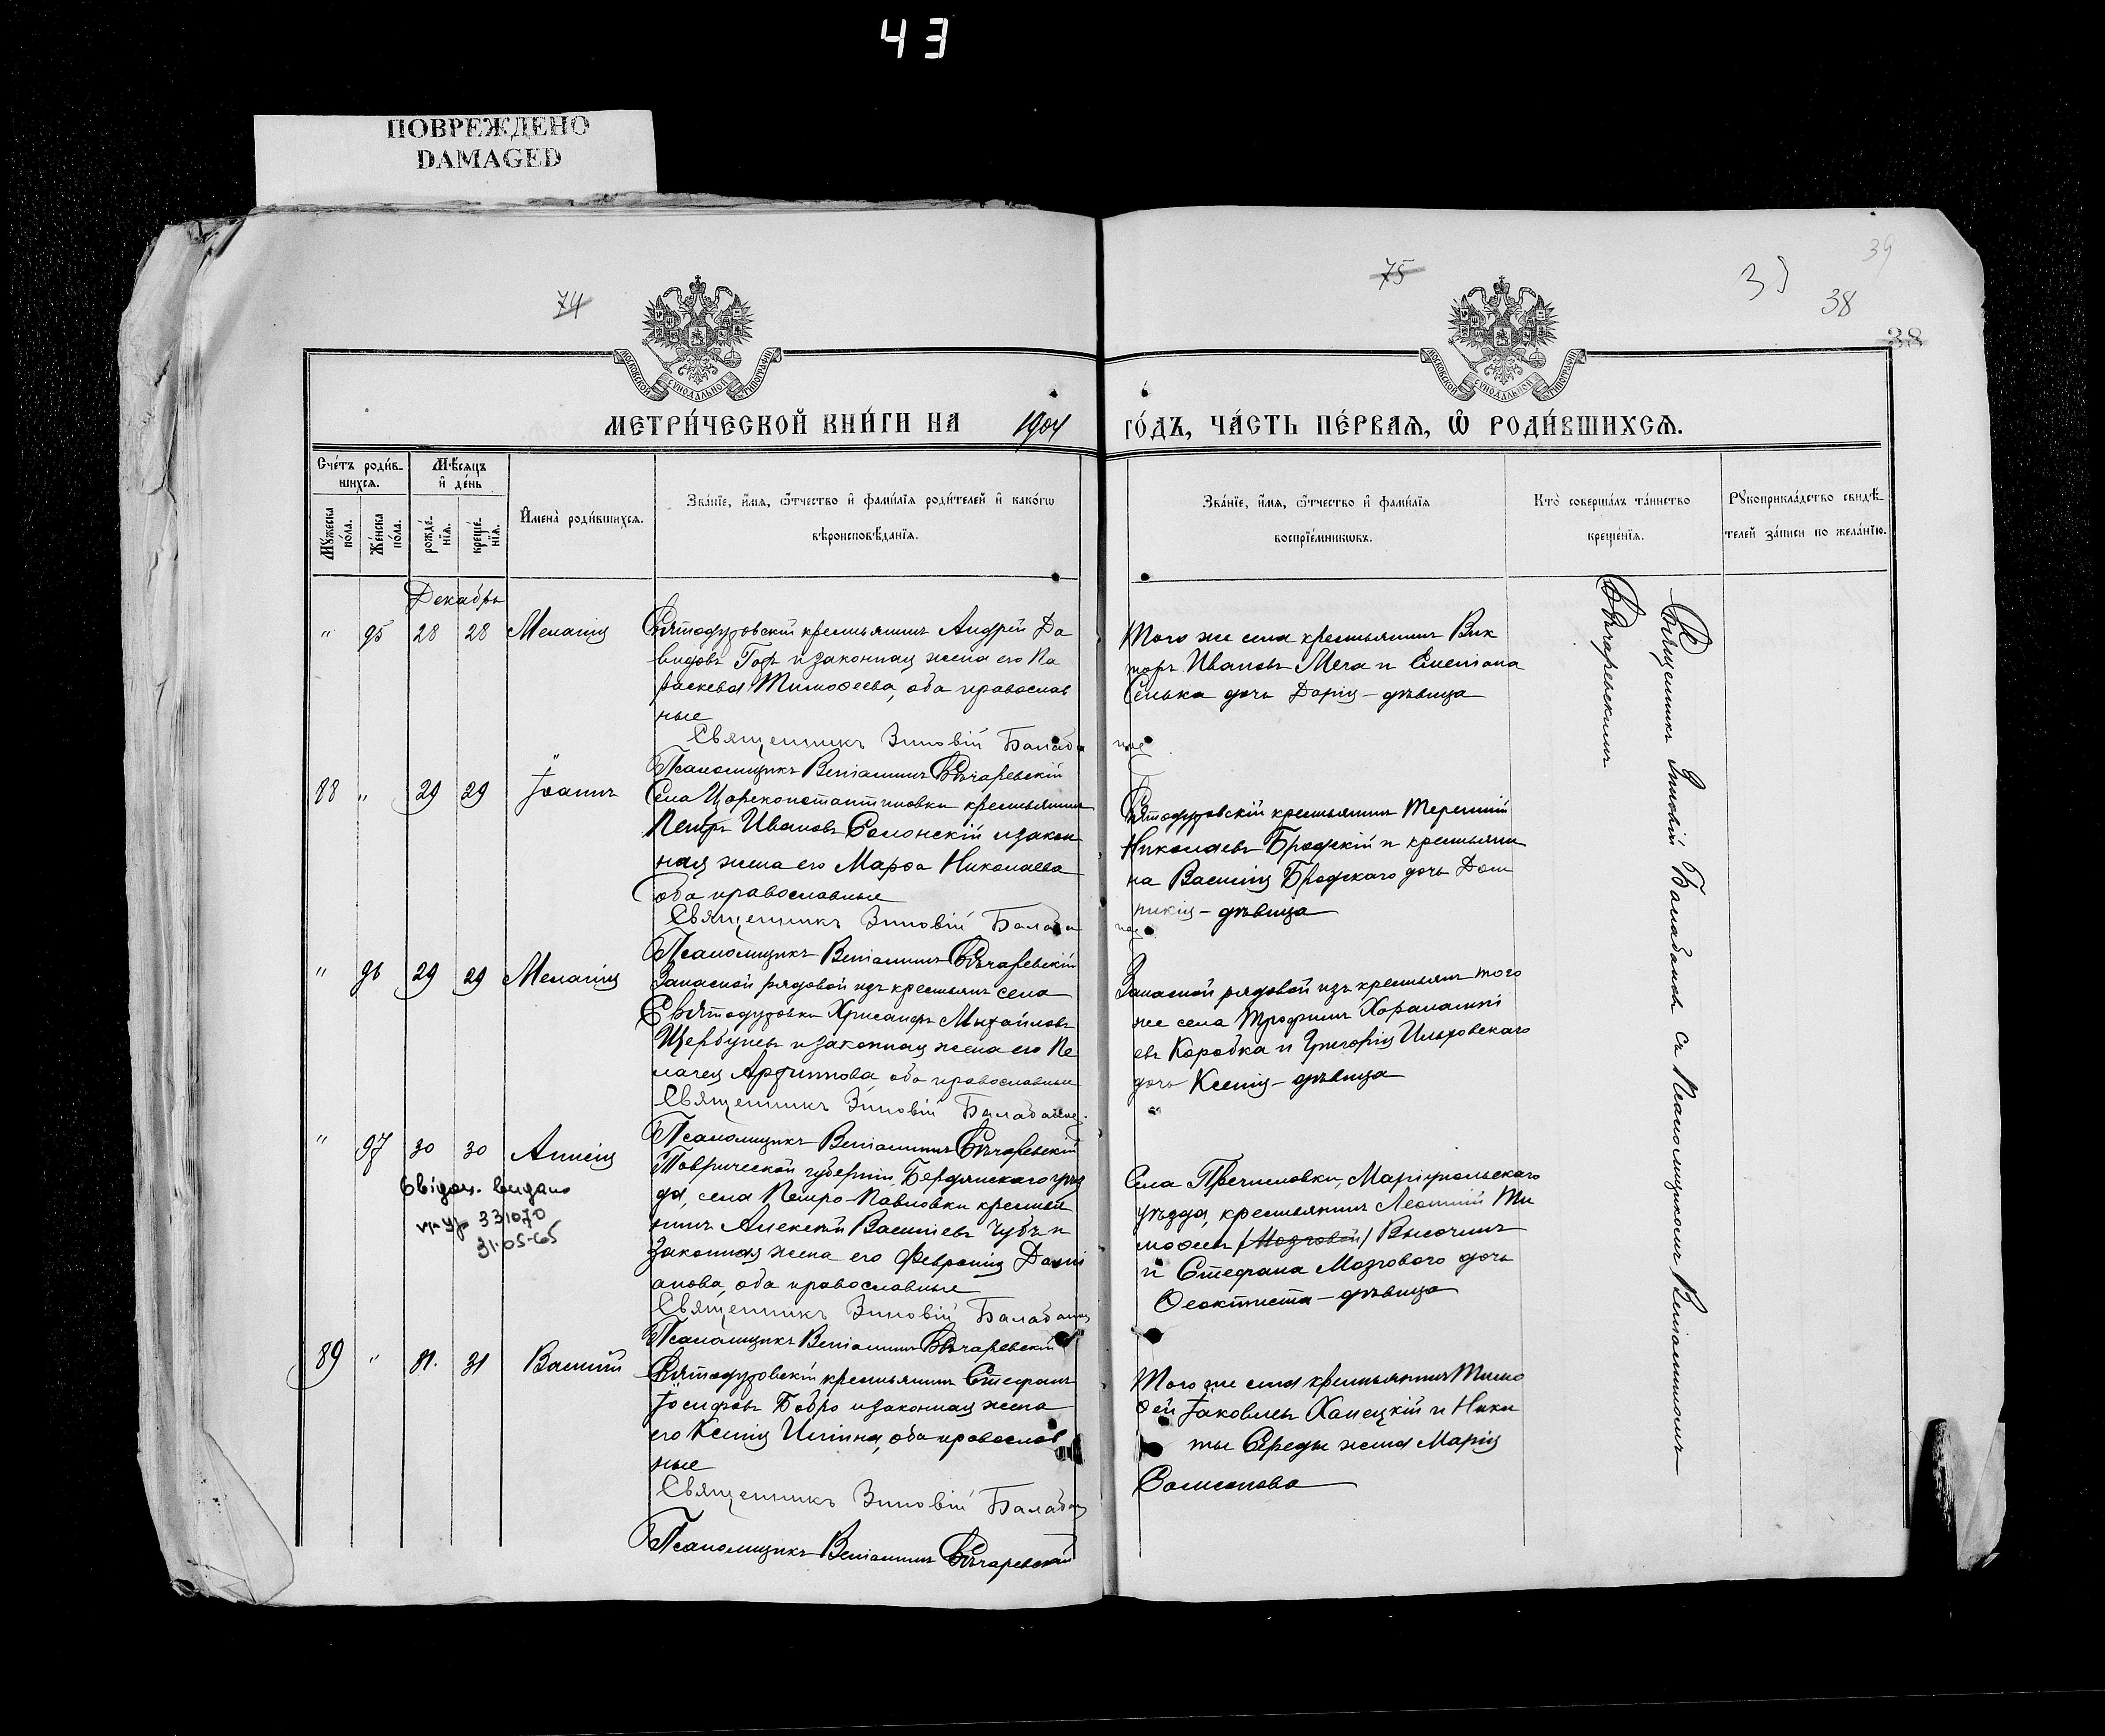 43
ПОВРЕЖДЕНО
DAMAGED
74
75
39
38
38
МОСКОВСКОЙ СѴНОДАЛЬНОЙ ТИПОГРАФІИ
МОСКОВСКОЙ СѴНОДАЛЬНОЙ ТИПОГРАФІИ
МЕТРИ́ЧЕСКОЙ КНИ́ГИ НА 1904 ГО́ДЪ, ЧА́СТЬ ПЕ́РВАѦ, Ѡ҆ РОДИ́ВШИХСѦ.
Сче́тъ роди́в-
шихсѧ.
Мꙋ́жеска по́ла.
Же́нска по́ла.
Мѣ́сяцъ и҆ де́нь
рожде́нїѧ.
креще́нїѧ.
И҆мена̀ роди́вшихсѧ.
Зва́нїе, и҆́мѧ, ѻ҆́тчество и҆ фами́лїѧ роди́телей и҆ како́гѡ
вѣроисповѣ́данїѧ.
Зва́нїе, и҆́мѧ, ѻ҆́тчество и҆ фами́лїѧ
воспрїе́мникѡвъ.
Кто̀ соверша́лъ та́инство
креще́нїѧ.
Рꙋкоприкла́дство свидѣ́-
телей за́писи по жела́нїю.
Декабрь
" 95 28 28 Меланія
Святодуховскій крестьянинъ Андрей Да
видовъ Гор и законная жена его Па
раскева Тимоѳеева, оба православ
ные
Священникъ Зиновій Балабанъ
Псаломщикъ Веніаминъ Овчаревскій
Того же села крестьянинъ Вик
торъ Ивановъ Меча и Емеліана
Сенька дочь Дарія - дѣвица
88 " 29 29 Іоаннъ
Села Цареконстантиновки крестьянинъ
Петръ Ивановъ Солонскій и закон
ная жена его Марѳа Николаева
оба православные
Священникъ Зиновій Балабанъ
Псаломщикъ Веніаминъ Овчаревскій
Святодуховскій крестьянинъ Терентій
Николаевъ Бродскій и крестьяни
на Василія Бродскаго дочь Дом
никія - дѣвица
" 96 29 29 Меланія
Запасной рядовой изъ крестьянъ села
Святодуховки Хрисанфъ Михайловъ
Щербина и законная жена его Пе
лагея оба православные
Священникъ Зиновій Балабанъ
Псаломщикъ Веніаминъ Овчаревскій
Запасной рядовой изъ крестьянъ того
же села Трофимъ Харлампі
евъ Коробка и Григорія Ильховскаго
дочь Ксенія - дѣвица
" 97 30 30 Анисія
Свідоц. видано
331070
31.05-65
Таврической губерніи, Бердянскаго уѣз
да, села Петро-Павловки крестья
нинъ Алексѣй Васильевъ Чубъ и
законная жена его Февронія Даміа
нова, оба православные
Священникъ Зиновій Балабанъ
Псаломщикъ Веніаминъ Овчаревскій
Села Пречистовки, Маріупольскаго
уѣзда, крестьянинъ Леонтій Ти
моѳеевъ (Мозговой) Высочинъ
и Стефана Мозгового дочь
Ѳеоктиста - дѣвица
89 " 31. 31 Василій
Святодуховскій крестьянинъ Стефанъ
Іосифовъ Бобро и законная жена
его Ксенія Ильина, оба православ
ные
Священникъ Зиновій Балабанъ
Псаломщикъ Веніаминъ Овчаревскій
Того же села крестьянинъ Тимо
ѳей Іаковлевъ Ханецкій и Ники
ты Середы жена Марія
Самсонова
Священникъ Зиновій Балабановъ съ Псаломщикомъ Веніаминомъ
Овчаревскимъ